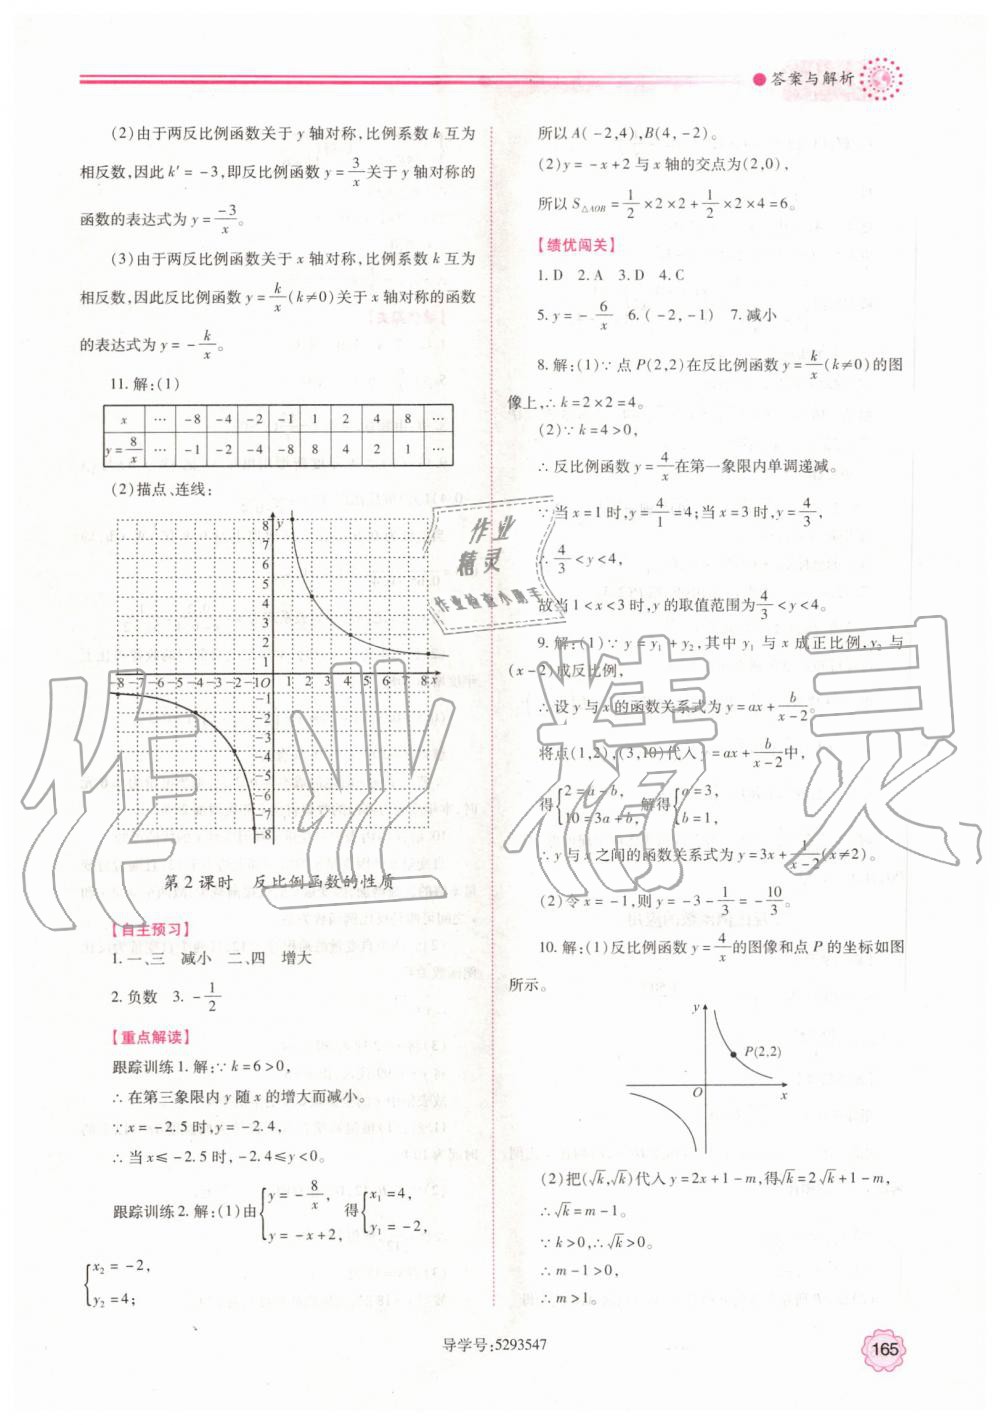 答案与解析
(2)由于两反比例函数关于 y 轴对称,比例系数 k 互为
相反数,因此 k′ = -3,即反比例函数 y = 3/x 关于 y 轴对称的
函数的表达式为 y = -3/x。
(3)由于两反比例函数关于 x 轴对称,比例系数 k 互为
相反数,因此反比例函数 y = k/x (k≠0)关于 x 轴对称的函数
的表达式为 y = - k/x。
11. 解:(1)
x … -8 -4 -2 -1 1 2 4 8 …
y = 8/x … -1 -2 -4 -8 8 4 2 1 …
(2)描点、连线:
y
8
7
6
5
4
3
2
1
-8 -7 -6 -5 -4 -3 -2 -1 O 1 2 3 4 5 6 7 8 x
-1
-2
-3
-4
-5
-6
-7
-8
第 2 课时 反比例函数的性质
【自主预习】
1. 一、三 减小 二、四 增大
2. 负数 3. - 1/2
【重点解读】
跟踪训练 1. 解:∵ k = 6 > 0,
∴ 在第三象限内 y 随 x 的增大而减小。
∵ x = -2.5 时,y = -2.4,
∴ 当 x ≤ -2.5 时, -2.4 ≤ y < 0。
跟踪训练 2. 解:(1)由 { y = - 8/x, y = -x + 2, 得 { x₁ = 4, y₁ = -2,
{ x₂ = -2, y₂ = 4;
所以 A( -2,4),B(4, -2)。
(2)y = -x + 2 与 x 轴的交点为(2,0),
所以 S△AOB = 1/2 × 2 × 2 + 1/2 × 2 × 4 = 6。
【绩优闯关】
1. D 2. A 3. D 4. C
5. y = - 6/x 6. ( -2, -1) 7. 减小
8. 解:(1)∵ 点 P(2,2)在反比例函数 y = k/x (k≠0)的图
像上,∴ k = 2 × 2 = 4。
(2)∵ k = 4 > 0,
∴ 反比例函数 y = 4/x 在第一象限内单调递减。
∵ 当 x = 1 时,y = 4/1 = 4;当 x = 3 时,y = 4/3,
∴ 4/3 < y < 4。
故当 1 < x < 3 时,y 的取值范围为 4/3 < y < 4。
9. 解:(1)∵ y = y₁ + y₂,其中 y₁ 与 x 成正比例,y₂ 与
(x - 2)成反比例,
∴ 设 y 与 x 的函数关系式为 y = ax + b/(x - 2)。
将点(1,2),(3,10)代入 y = ax + b/(x - 2) 中,
得 { 2 = a - b, 10 = 3a + b, 解得 { a = 3, b = 1,
∴ y 与 x 之间的函数关系式为 y = 3x + 1/(x - 2) (x≠2)。
(2)令 x = -1,则 y = -3 - 1/3 = - 10/3。
10. 解:(1)反比例函数 y = 4/x 的图像和点 P 的坐标如图
所示。
y
P(2,2)
O x
(2)把(√k,√k)代入 y = 2x + 1 - m,得 √k = 2√k + 1 - m,
∴ √k = m - 1。
∵ k > 0,∴ √k > 0。
∴ m - 1 > 0,
∴ m > 1。
作业
精灵
作业检查小助手
作业精灵
导学号:5293547
165